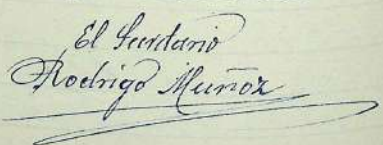 El Secretario
Rodrigo Muñoz